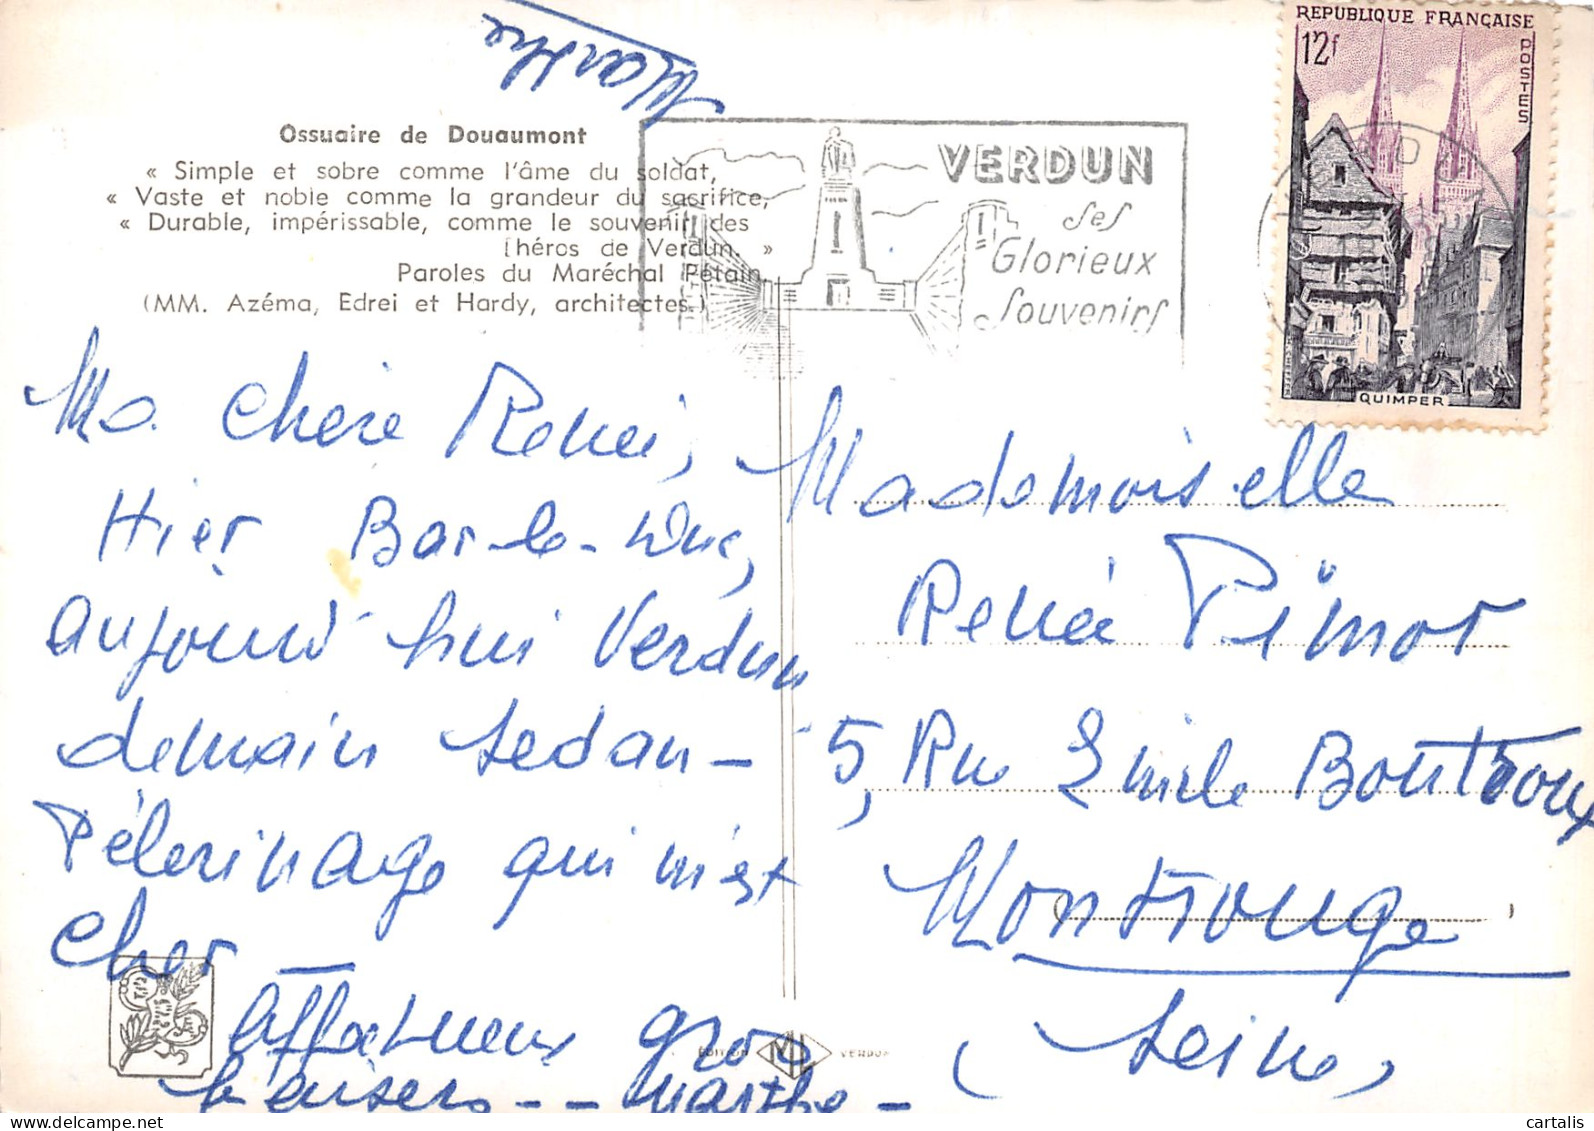 Marthe
Ossuaire de Douaumont
« Simple et sobre comme l'âme du soldat,
« Vaste et noble comme la grandeur du sacrifice,
« Durable, impérissable, comme le souvenir des
[héros de Verdun. »
Paroles du Maréchal Pétain.
(MM. Azéma, Edrei et Hardy, architectes.)
VERDUN
ses
Glorieux
Souvenirs
REPUBLIQUE FRANÇAISE
12f
POSTES
QUIMPER
Ma chère Renée,
Hier Bar-le-Duc,
aujourd'hui Verdun
demain Sedan —
Pélerinage qui m'est
cher
Affectueux gros
baisers - - Marthe -
Mademoiselle
Renée Pimor
5, Rue Emile Boutroux
Montrouge
(Seine)
EDITION ML VERDUN
cartalis
cartalis.delcampe.net